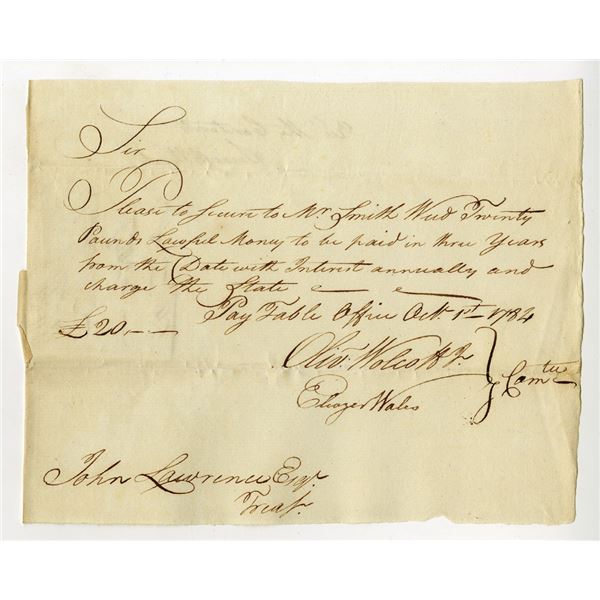 Sir
Please to Secure to Mr. Smith Weed Twenty
Pounds Lawful Money to be paid in three Years
from the Date with Interest annually and
charge the State
Pay Table Office Octr. 1st 1784
£20.--
Oliv. Wolcott Jr.
Eliezer Wales
} Comtee
John Lawrence Esqr.
Treasr.